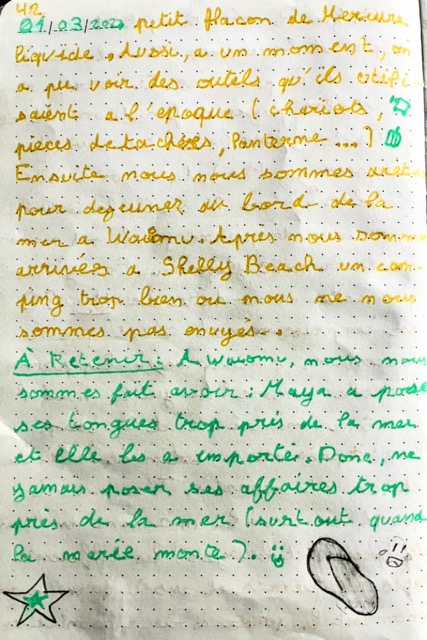 42
01/03/202 petit flacon de Mercure
liquide. Aussi, a un moment, on
a pu voir des outils qu'ils utili
saient a l'epoque (chariots,
pièces detachées, lanterne ...)
Ensuite nous nous sommes arrete
pour dejeuner au bord de la
mer a Waiomu. Après nous somm
arrivées a Shelly Beach un cam-
ping trop bien ou nous ne nous
sommes pas enuyés...
À Retenir : A Waiomu, nous nous
sommes fait avoir : Maya a posé
ses tongues trop près de la mer
et elle les a importé. Donc, ne
jamais poser ses affaires trop
près de la mer (surtout quand
la marée monte).